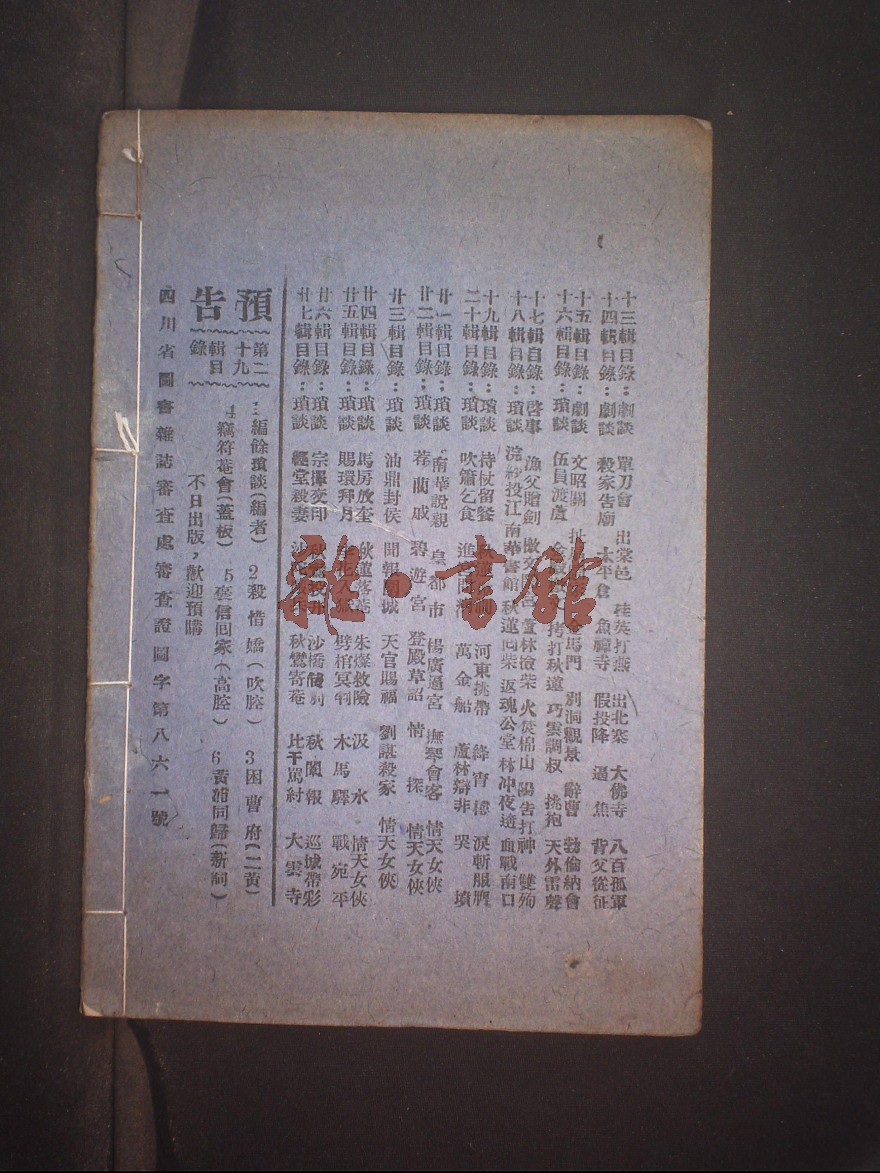 十三輯目錄：劇談 單刀會 出棠邑 桂英打燕 出北塞 大佛寺 八百孤軍
十四輯目錄：劇談 殺家告廟 太平倉 魚禪寺 假投降 逼焦 背父從征
十五輯目錄：劇談 文昭關 金馬門 別洞觀景 辭曹 勃倫納會
十六輯目錄：瑣談 伍員渡蘆 拷打秋蓮 巧雲調叔 挑袍 天外雷聲
十七輯目錄：啓事 漁父贈劍 蘆林撿柴 火焚棉山 陽告打神 雙殉
十八輯目錄：瑣談 浣紗投江 南華書館 秋蓮撿柴 返魂公堂 林冲夜逃 血戰南口
十九輯目錄：瑣談 持杖留餐 河東挑帶 綘霄樓 淚斬服膺
二十輯目錄：瑣談 吹簫乞食 萬金船 蘆林辯非 哭墳
廿一輯目錄：瑣談 南華說親 皇都市 楊廣逼宮 撫琴會客 情天女俠
廿二輯目錄：瑣談 荐蘭戚 碧遊宮 登殿草詔 情探 情天女俠
廿三輯目錄：瑣談 油鼎封侯 聞報 城 天官賜福 劉諶殺家 情天女俠
廿四輯目錄：瑣談 馬房放奎 秋蓮落菴 朱燦救險 汲水 情天女俠
廿五輯目錄：瑣談 賜環拜月 劈棺冥判 木馬驛 戰宛平
廿六輯目錄：瑣談 宗澤交印 沙橋餞別 秋闈報 巡城帶彩
廿七輯目錄：瑣談 經堂殺妻 秋鸞寄菴 比干罵紂 大雲寺
預告
第二十九輯目錄
1 編餘瑣談（編者） 2 殺惜嬌（吹腔） 3 困曹府（二黃）
4 竊符菴會（蓋板） 5 褒信回家（高腔） 6 黃浦同歸（新詞）
不日出版，歡迎預購
四川省圖書雜誌審查處審查證圖字第八六一號
雜·書館